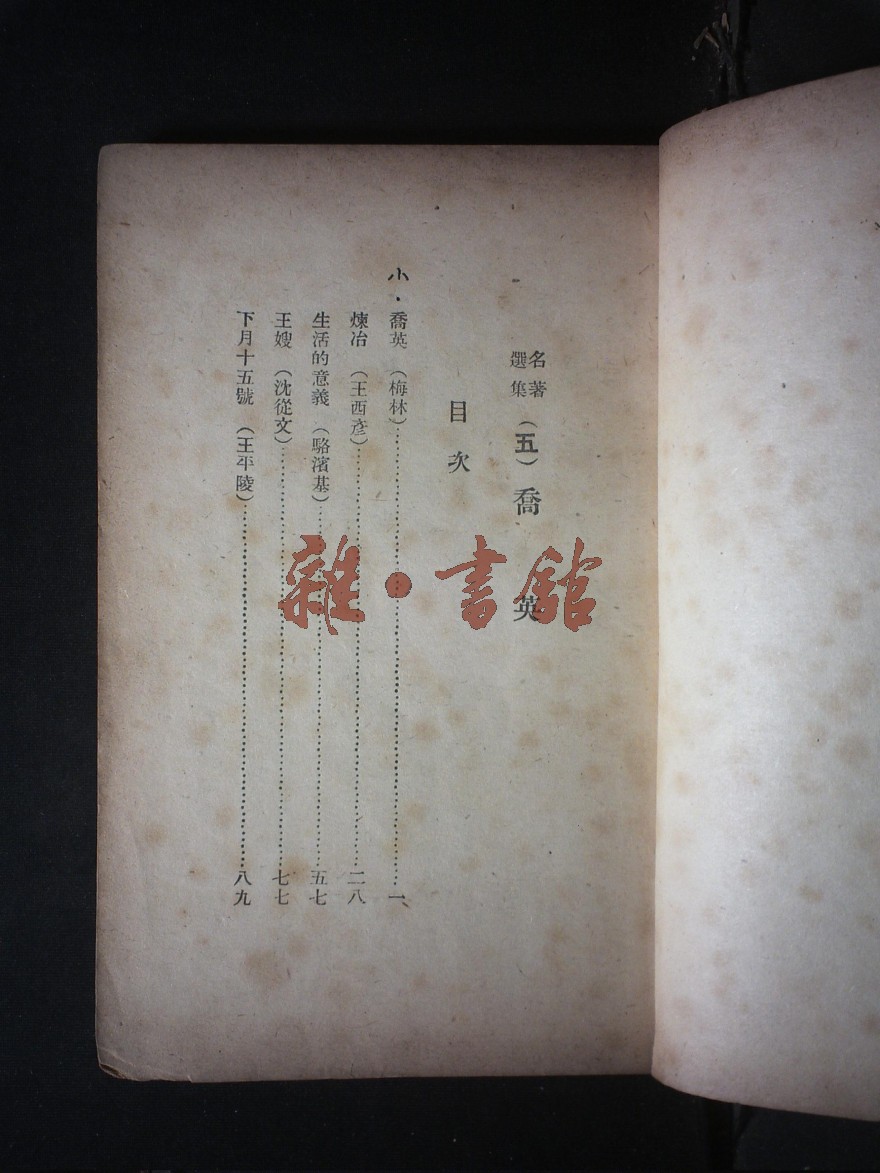 名著選集（五）喬英
目次
小・喬英　（梅林）……一
煉冶　（王西彥）……二八
生活的意義　（駱濱基）……五七
王嫂　（沈從文）……七七
下月十五號　（王平陵）……八九
雜・書館